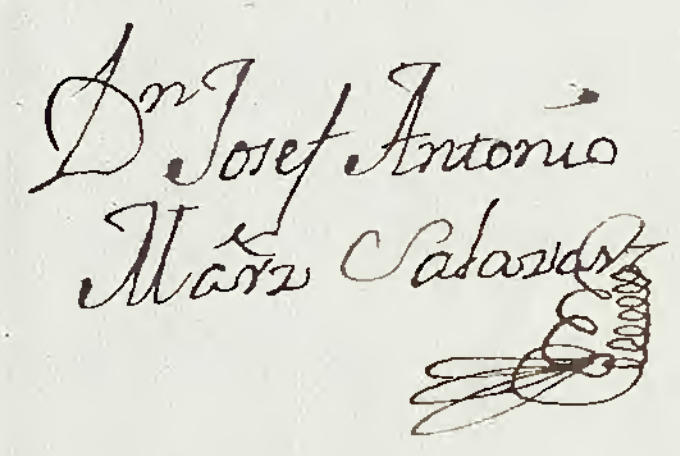 Dn Josef Antonio
Márz Salazar